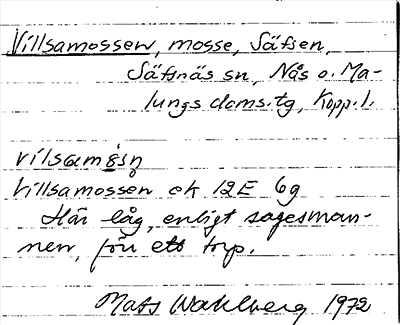 Villsamossen, mosse, Säfsen,
Säfsnäs sn, Nås o. Ma-
lungs doms.tg, Kopp. l.
vilsamåsn̥
Villsamossen ek 12E 6g
Här låg, enligt sagesman-
nen, förr ett torp.
Mats Wahlberg 1972